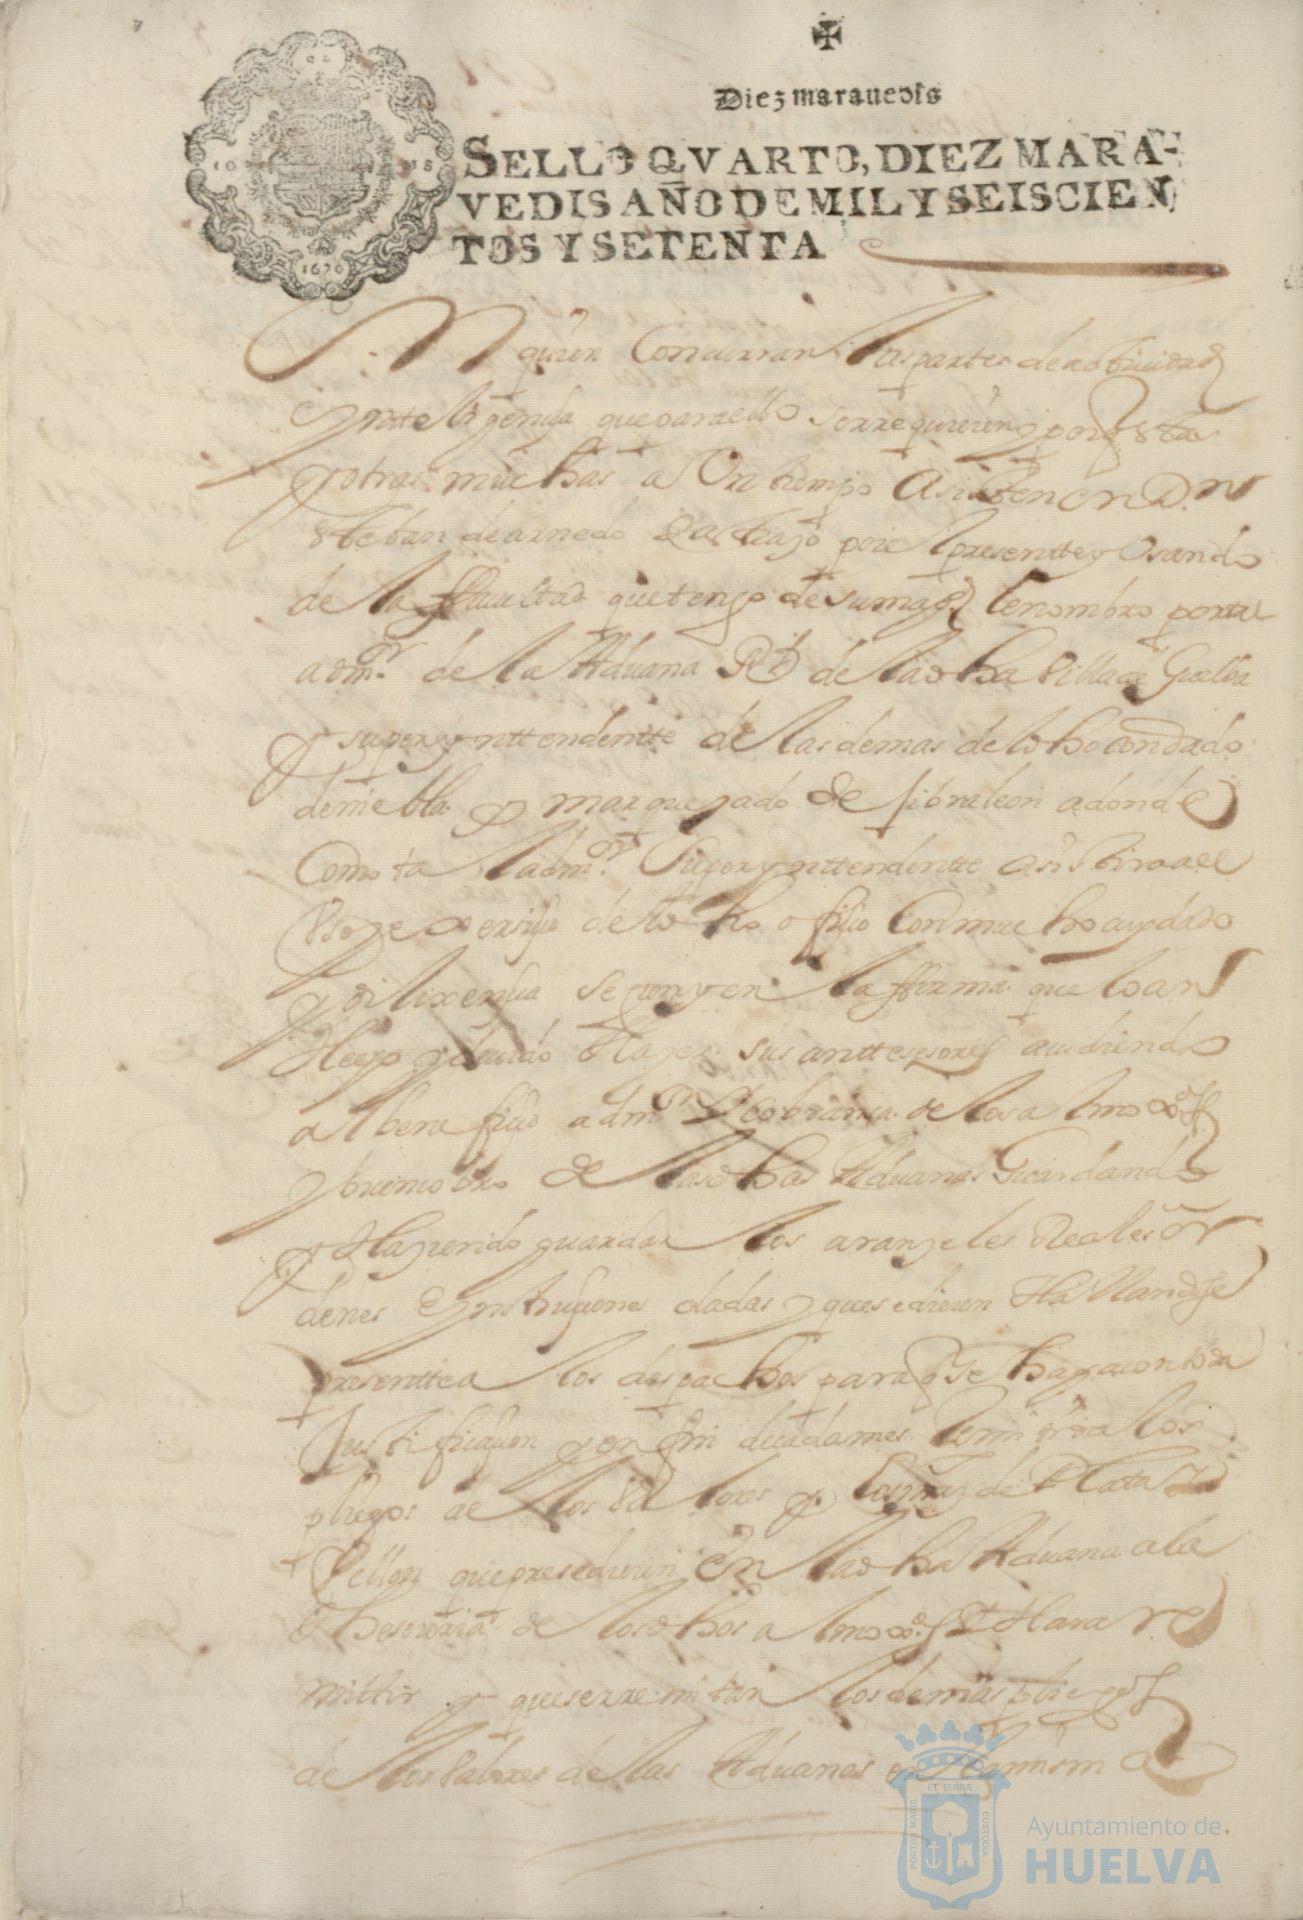 Diez maravedis
SELLO QVARTO, DIEZ MARA-
VEDIS AÑO DE MIL Y SEISCIEN
TOS Y SETENTA
1676
En quien Concurran las partes de actiuidad
Ynteligencia que para ello se rrequieren y por q̃ esta
y otras muchas a Vn tiempo Asisten en D.n
esteban de arnedo por el presentte y Vsando
de la ffacultad que tengo de su mag.d le nombro por tal
adm.or de la Aduana R.l de la dha Villa de Guelba
y superynttendentte de las demas del dho condado
de niebla y marquesado de jibraleon adonde
Como tal adm.or Superynttendentte asistira al
Vso y exersiçio del dho ofiçio Con mucho cuydado
y dilixençia segun y en la fforma que lo an
Hecho y deuido Hazer sus anttesesores acudiendo
al benefiçio adm.on y cobranza de los almox.dos
y de las dhas Aduanas Guardando
y Haziendo guardar los aranzeles Reales or
denes e ynstruçiones dadas y que se dieren Hallandose
presentte a los despachos para q̃ se haga con toda
Justificaçion y en fin de cada mes remitira los
pliegos de los Valores y los mrs de Platta y
Vellon que prosedieren En la dha Aduana a la
thesoreria de los dhos almox.dos y Hara re
mittir y que se rremitan los demas pliegos
de los Valores de las Aduanas
ET TERRÆ
PORTUS MARIS
CUSTODIA
Ayuntamiento de
HUELVA